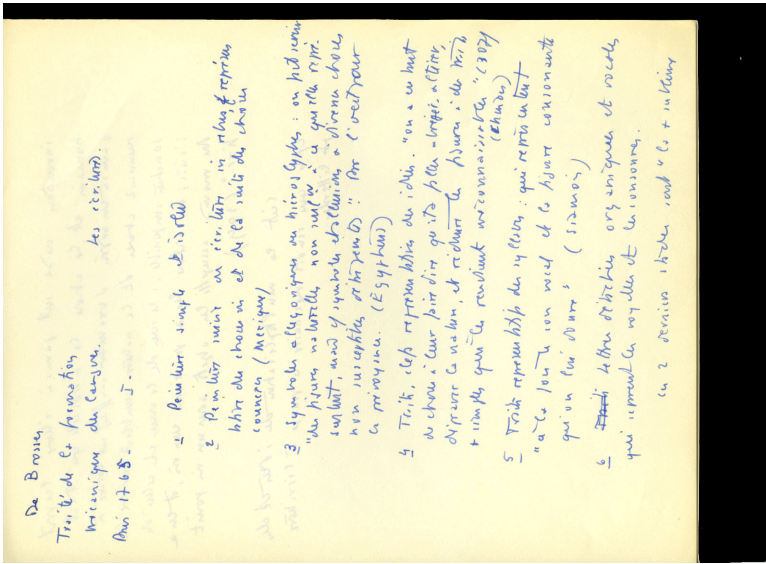 De Brosses
Traité de la formation
mécanique des langues.
Paris 1765. I.
Les écritures.
1 Peinture simple et isolée
2 Peinture suivie ou écriture in rebus, représen
tative des choses et de la suite des choses
connexes (Mexique)
3 Symboles allégoriques ou hiéroglyphes : on put
"des figures naturelles non seult à ce qu'elle repré-
sentent, mais symboles et allusions à diverses choses
non susceptibles" Par l'œil pour
la prévoyance. (Egyptiens)
4 Traits, clefs représentatives des idées. "on a eu
de choses à leur faire dire qu'il a fallu abréger, altérer,
dépraver la nature, et réduire les figures à des traits
+ simples qui les rendirent méconnaissables" (307)
(Chinois)
5 Traits représentatifs des syllabes : qui représentent
"à la fois le son vocal et la figure consonante
qu'on lui donne" (Siamois)
6 Lettres détachées organiques et vocales
qui expriment les voyelles et les consonnes.